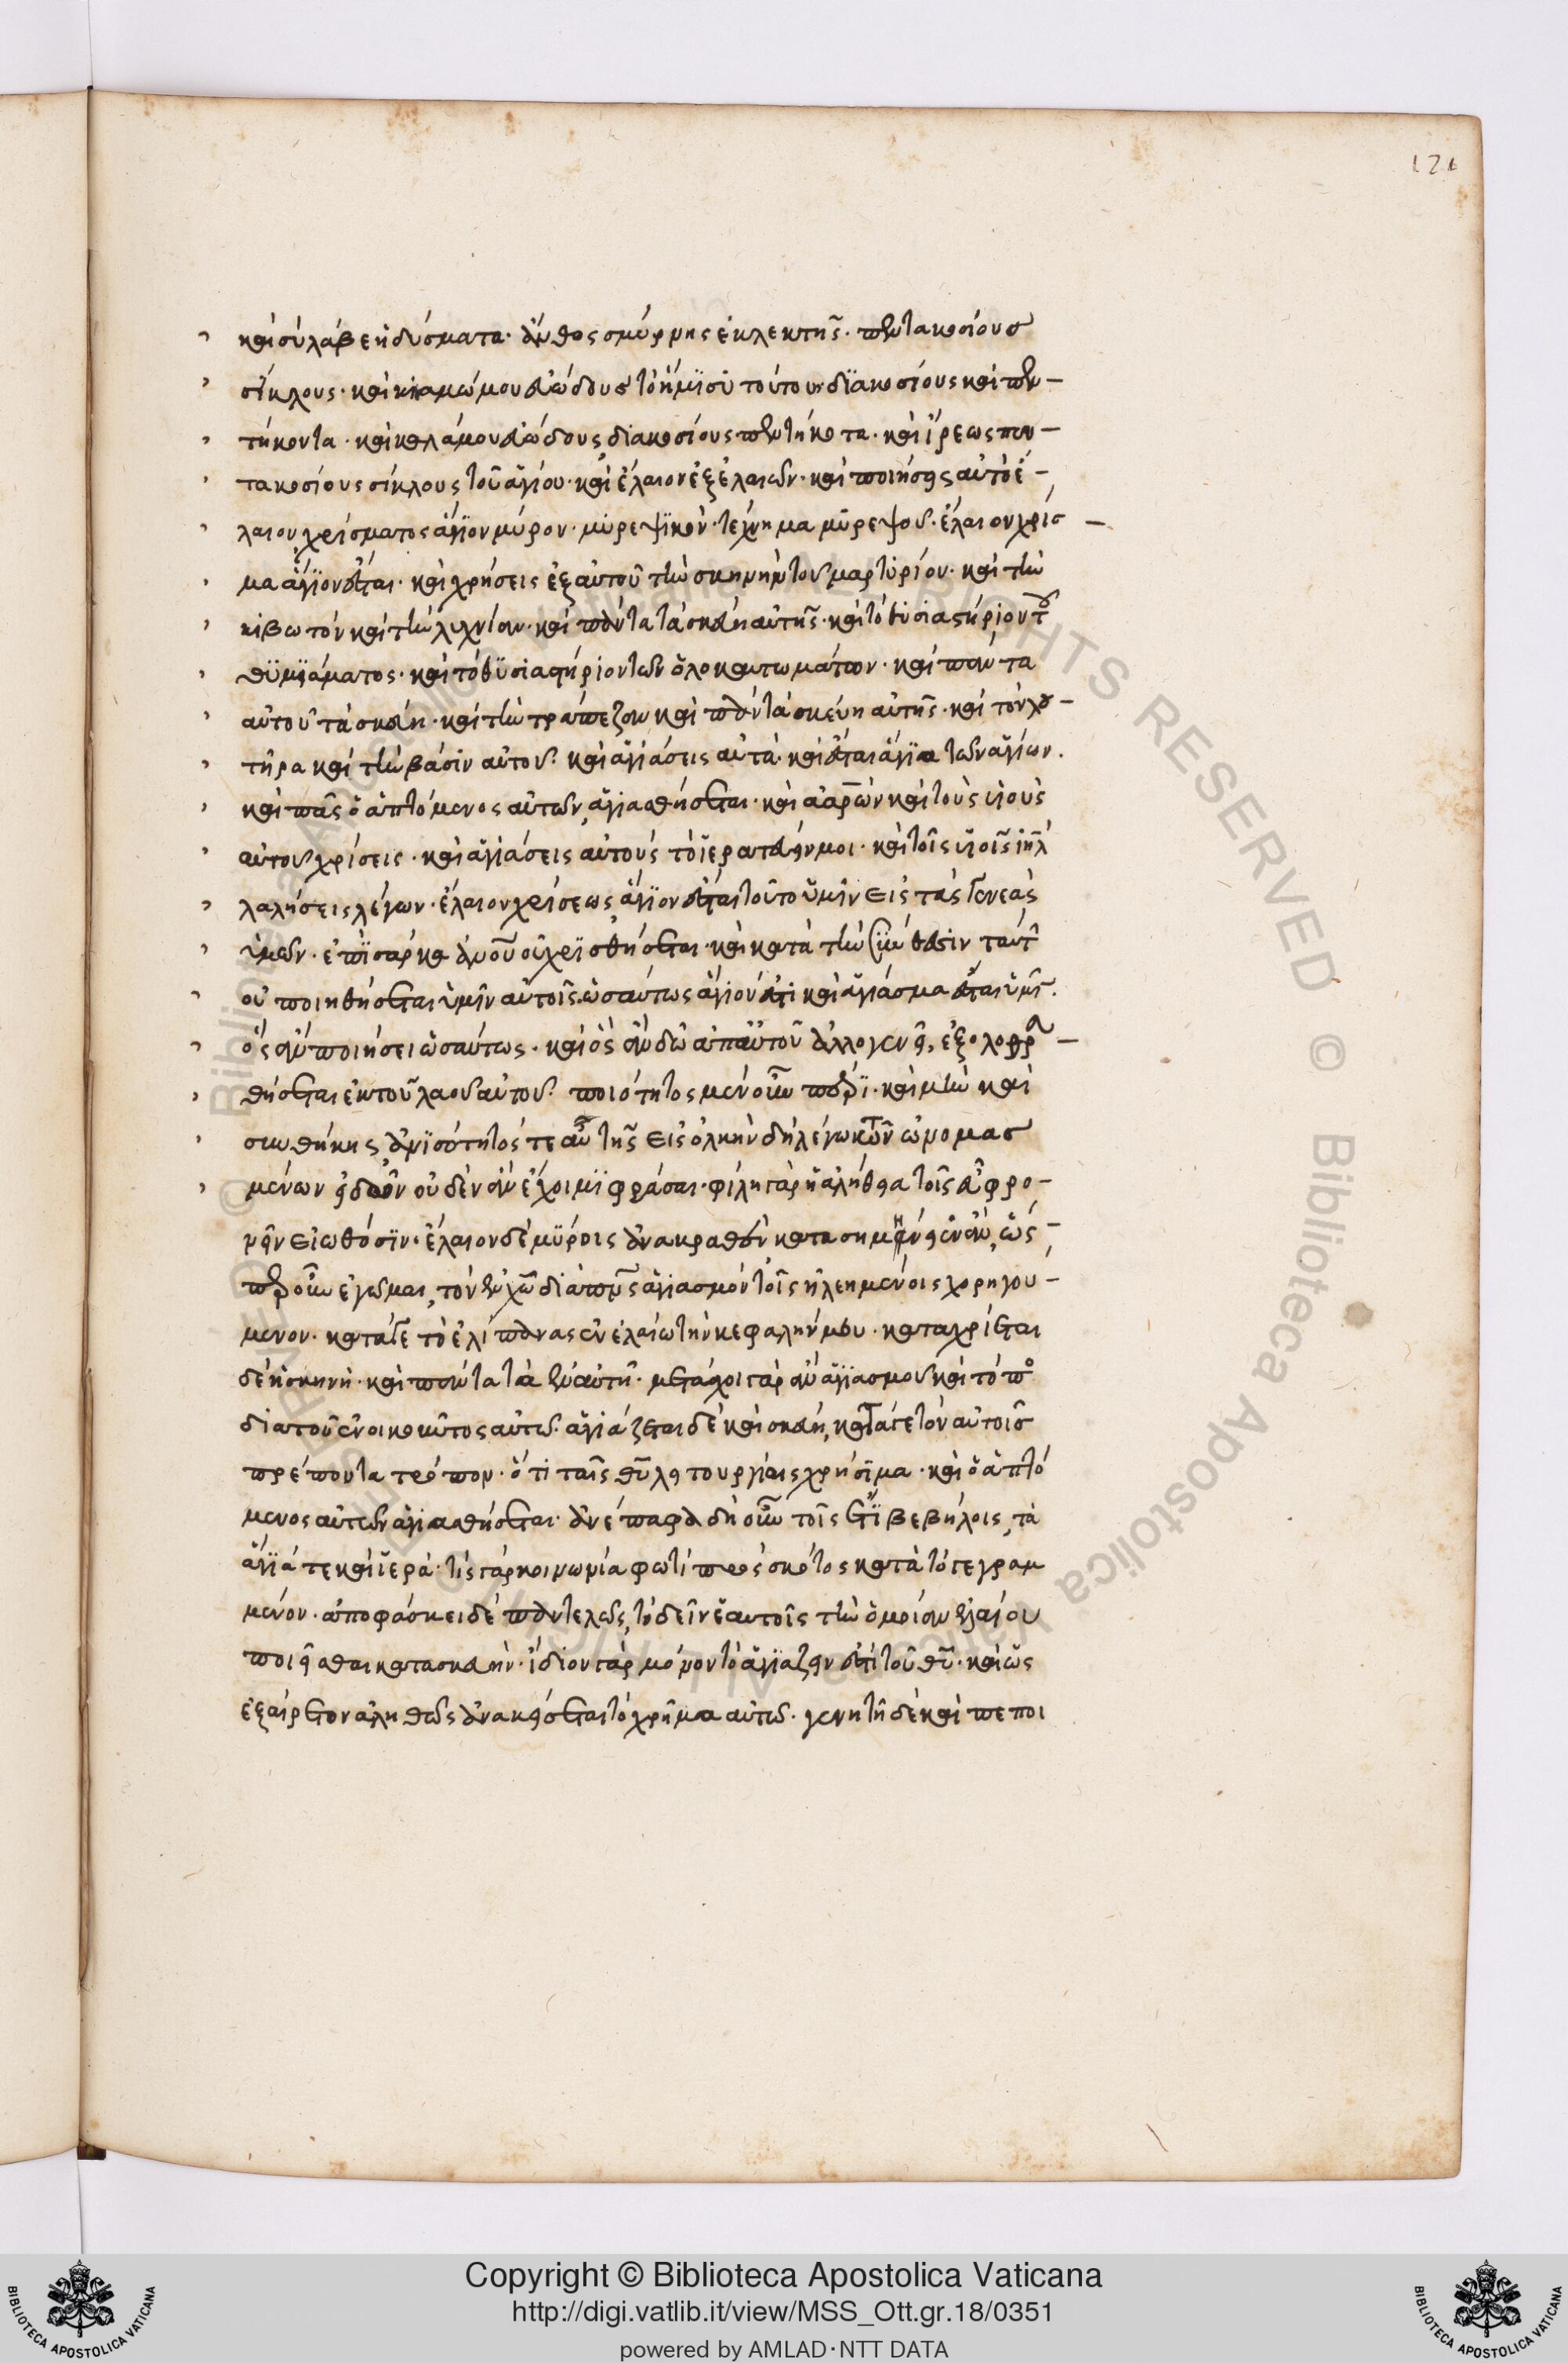 121
καὶ σὺ λάβε ἡδύσματα· ἄνθος σμύρνης ἐκλεκτῆς· πεντακοσίους
σίκλους· καὶ κιναμώμου εὐώδους τὸ ἥμϊσϋ τούτου· διακοσίους καὶ πεν–
τήκοντα· καὶ καλάμου εὐώδους, διακοσίους πεντήκοτα· καὶ ἴρεως πεν–
τακοσίους σίκλους τοῦ ἁγίου· καὶ ἔλαιον ἐξ ἐλαιῶν· καὶ ποιήσεις αὐτὸ ἔ–
λαιον χρίσματος ἅγϊον μύρον· μυρεψϊκὸν τέχνημα μυρεψοῦ· ἔλαιον χρίσ–
μα ἅγϊον ἔσται· καὶ χρήσεις ἐξ αὐτοῦ τὴν σκηνὴν τοῦ μαρτυρίου· καὶ τὴν
κιβωτὸν καὶ τὴν λυχνίαν· καὶ πάντα τὰ σκεύη αὐτῆς· καὶ τὸ θυσιαστήριον τοῦ
θϋμϊάματος· καὶ τὸ θϋσιαστήριον τῶν ὁλοκαυτωμάτων· καὶ πάντα
αὐτοῦ τὰ σκεύη· καὶ τὴν τράπεζαν καὶ πάντα σκεύη αὐτῆς· καὶ τὸν λου–
τῆρα καὶ τὴν βάσιν αὐτοῦ· καὶ ἁγιάσεις αὐτά· καὶ ἔσται ἅγϊα τῶν ἁγίων.
καὶ πᾶς ὁ ἁπτόμενος αὐτῶν, ἁγιασθήσεται· καὶ ἀαρὼν καὶ τοὺς υἱοὺς
αὐτοῦ χρίσεις· καὶ ἁγιάσεις αὐτοὺς τὸ ἱερατεύειν μοι· καὶ τοῖς υἱοῖς ιηλ
λαλήσεις λέγων· ἔλαιον χρίσεως, ἅγϊον ἔσται τοῦτο ὑμῖν εἰς τὰς γενεὰς
ὑμῶν· ἐπϊ σάρκα ἀνου οὐ χρϊσθήσεται· καὶ κατὰ τὴν σύνθεσιν ταύτ
οὐ ποιηθήσεται ὑμῖν αὐτοῖς ὡσαύτως ἅγιόν ἐστι καὶ ἁγίασμα ἔσται ὑμῖν.
ὃς ἂν ποιήσει ὡσαύτως· καὶ ὃς ἂν δῶ ἀπ αὐτοῦ ἀλλογενεῖ, ἐξολοθρευ–
θήσεται ἐκ τοῦ λαοῦ αὐτοῦ· ποιότητος μὲν οὖν πέρϊ· καὶ μὴν καὶ
συνθήκης, ἀνϊσότητός τε αὖ τῆς εἰς ὁλκὴν δὴ λέγω τῶν ὠνομασ
μένων εἰδῶν οὐδὲν ἂν ἔχοιμϊ φράσαι· φίλη γὰρ ἡ ἀλήθεια τοῖς εὖ φρο–
νεῖν εἰωθόσϊν· ἔλαιον δὲ μϋροις ἀνακραθὲν, κατασημήνειεν ἂν, ὥς–
περ οὖν ἐγῶμαι, τὸν ἐν χῶ διὰ πνς ἁγιασμὸν τοῖς ἠλεημένοις χορηγού–
μενον· κατά γε τὸ ἐλίπανας ἐν ἐλαίω τὴν κεφαλήν μου· καταχρίεται
δὲ ἡ σκηνὴ· καὶ πάντα τὰ ἐν αὐτῆ· μετάσχοι γὰρ ἂν ἁγϊασμοῦ καὶ τόπος
διὰ τοῦ ἐνοικοῦντος αὐτῶ· ἁγιάζεται δὲ καὶ σκεύη, κατά γε τὸν αὐτοῖς
πρέποντα τρόπον· ὅτι ταῖς θυ λειτουργίαις χρήσϊμα· καὶ ὁ ἁπτό
μενος αὐτῶν ἁγιασθήσεται· ἀνέπαφα δὴ οὖν τοῖς ἔτϊ βεβήλοις, τὰ
ἅγϊά τε καὶ ἱερά· τίς γὰρ κοινωνία φωτὶ πρὸς σκότος κατὰ τὸ γεγραμ
μένον· ἀποφάσκει δὲ παντελῶς, τὸ δεῖν ἑαυτοῖς τὴν ὁμοίαν ἐλαίου
ποιεῖσθαι κατασκευήν· ἴδιον γὰρ μόνον τὸ ἁγϊάζειν ἐστὶ τοῦ θυ· καὶ ὡς
ἐξαίρετον ἀληθῶς ἀνακείσεται τὸ χρῆμα αὐτῶ· γενητῆ δὲ καὶ πεποι
Copyright © Biblioteca Apostolica Vaticana
http://digi.vatlib.it/view/MSS_Ott.gr.18/0351
powered by AMLAD·NTT DATA